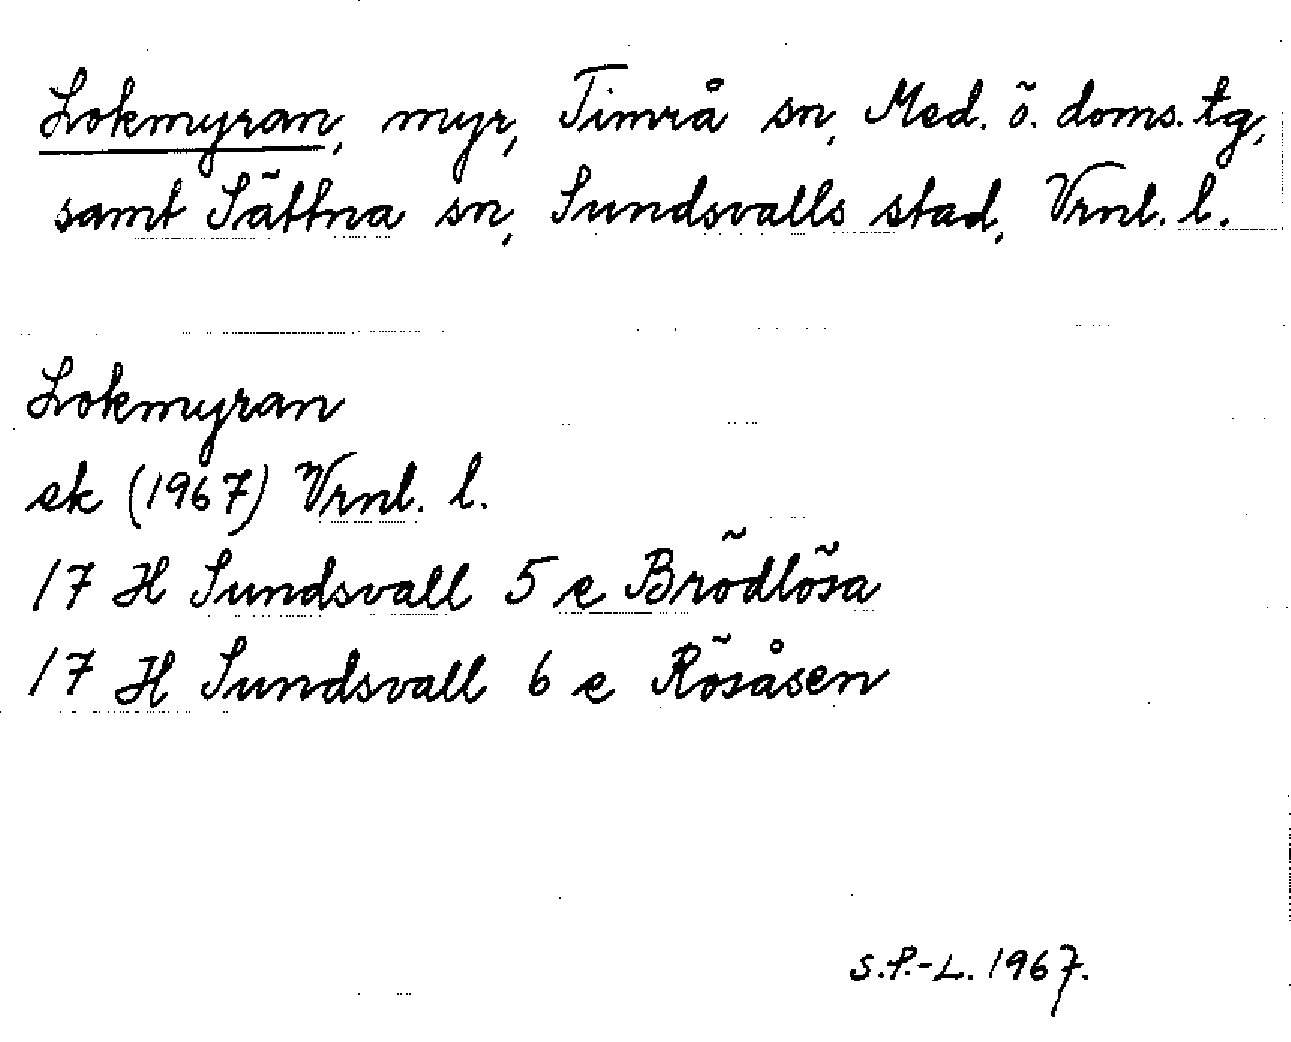 Lokmyran, myr, Timrå sn, Med. ö. doms. tg,
samt Sättna sn, Sundsvalls stad, Vrnl. l.
Lokmyran
ek (1967) Vrnl. l.
17 H Sundsvall 5 e Brödlösa
17 H Sundsvall 6 e Rösåsen
S.P.-L. 1967.